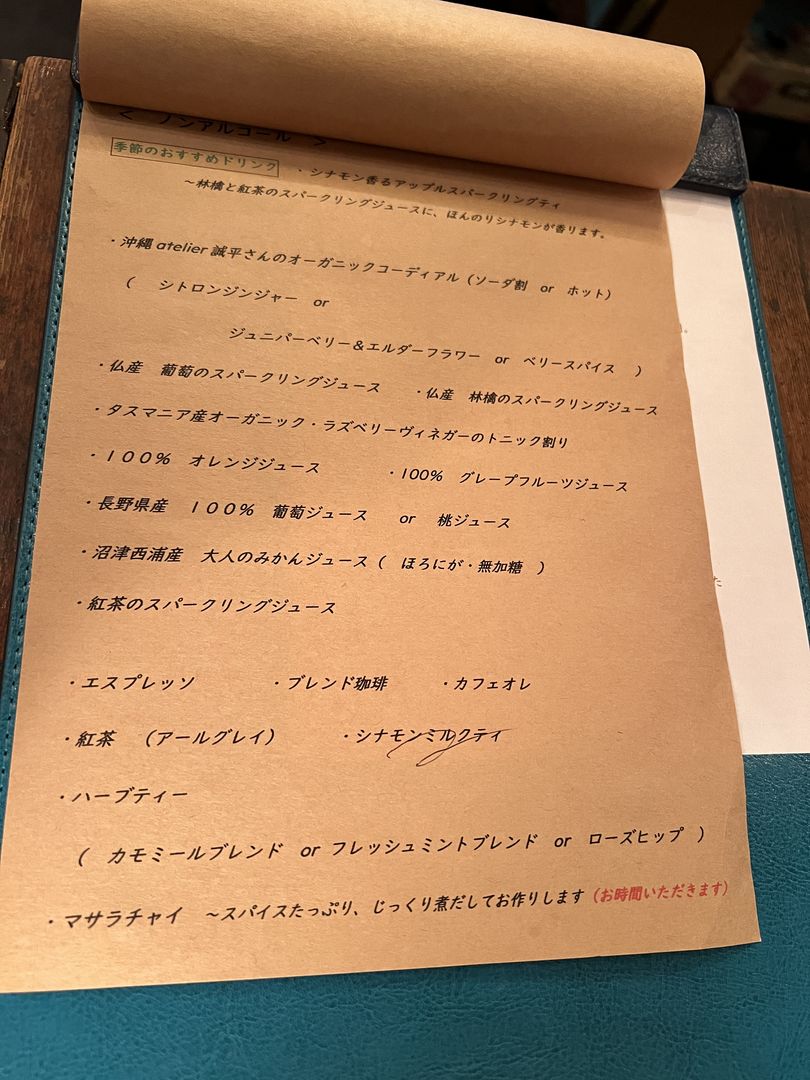 < ノンアルコール >
季節のおすすめドリンク ・シナモン香るアップルスパークリングティ
~林檎と紅茶のスパークリングジュースに、ほんのりシナモンが香ります。
・沖縄 atelier 誠平さんのオーガニックコーディアル (ソーダ割 or ホット)
( シトロンジンジャー or
ジュニパーベリー&エルダーフラワー or ベリースパイス )
・仏産 葡萄のスパークリングジュース ・仏産 林檎のスパークリングジュース
・タスマニア産オーガニック・ラズベリーヴィネガーのトニック割り
・100% オレンジジュース ・100% グレープフルーツジュース
・長野県産 100% 葡萄ジュース or 桃ジュース
・沼津西浦産 大人のみかんジュース ( ほろにが・無加糖 )
・紅茶のスパークリングジュース
・エスプレッソ ・ブレンド珈琲 ・カフェオレ
・紅茶 (アールグレイ) ・シナモンミルクティ
・ハーブティー
( カモミールブレンド or フレッシュミントブレンド or ローズヒップ )
・マサラチャイ ~スパイスたっぷり、じっくり煮だしてお作りします (お時間いただきます)